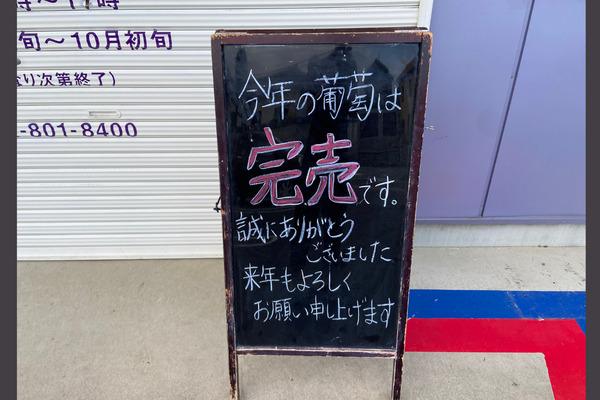 時～17時
旬～10月初旬
なり次第終了）
-801-8400
今年の葡萄は
完売です。
誠にありがとう
ございました
来年もよろしく
お願い申し上げます